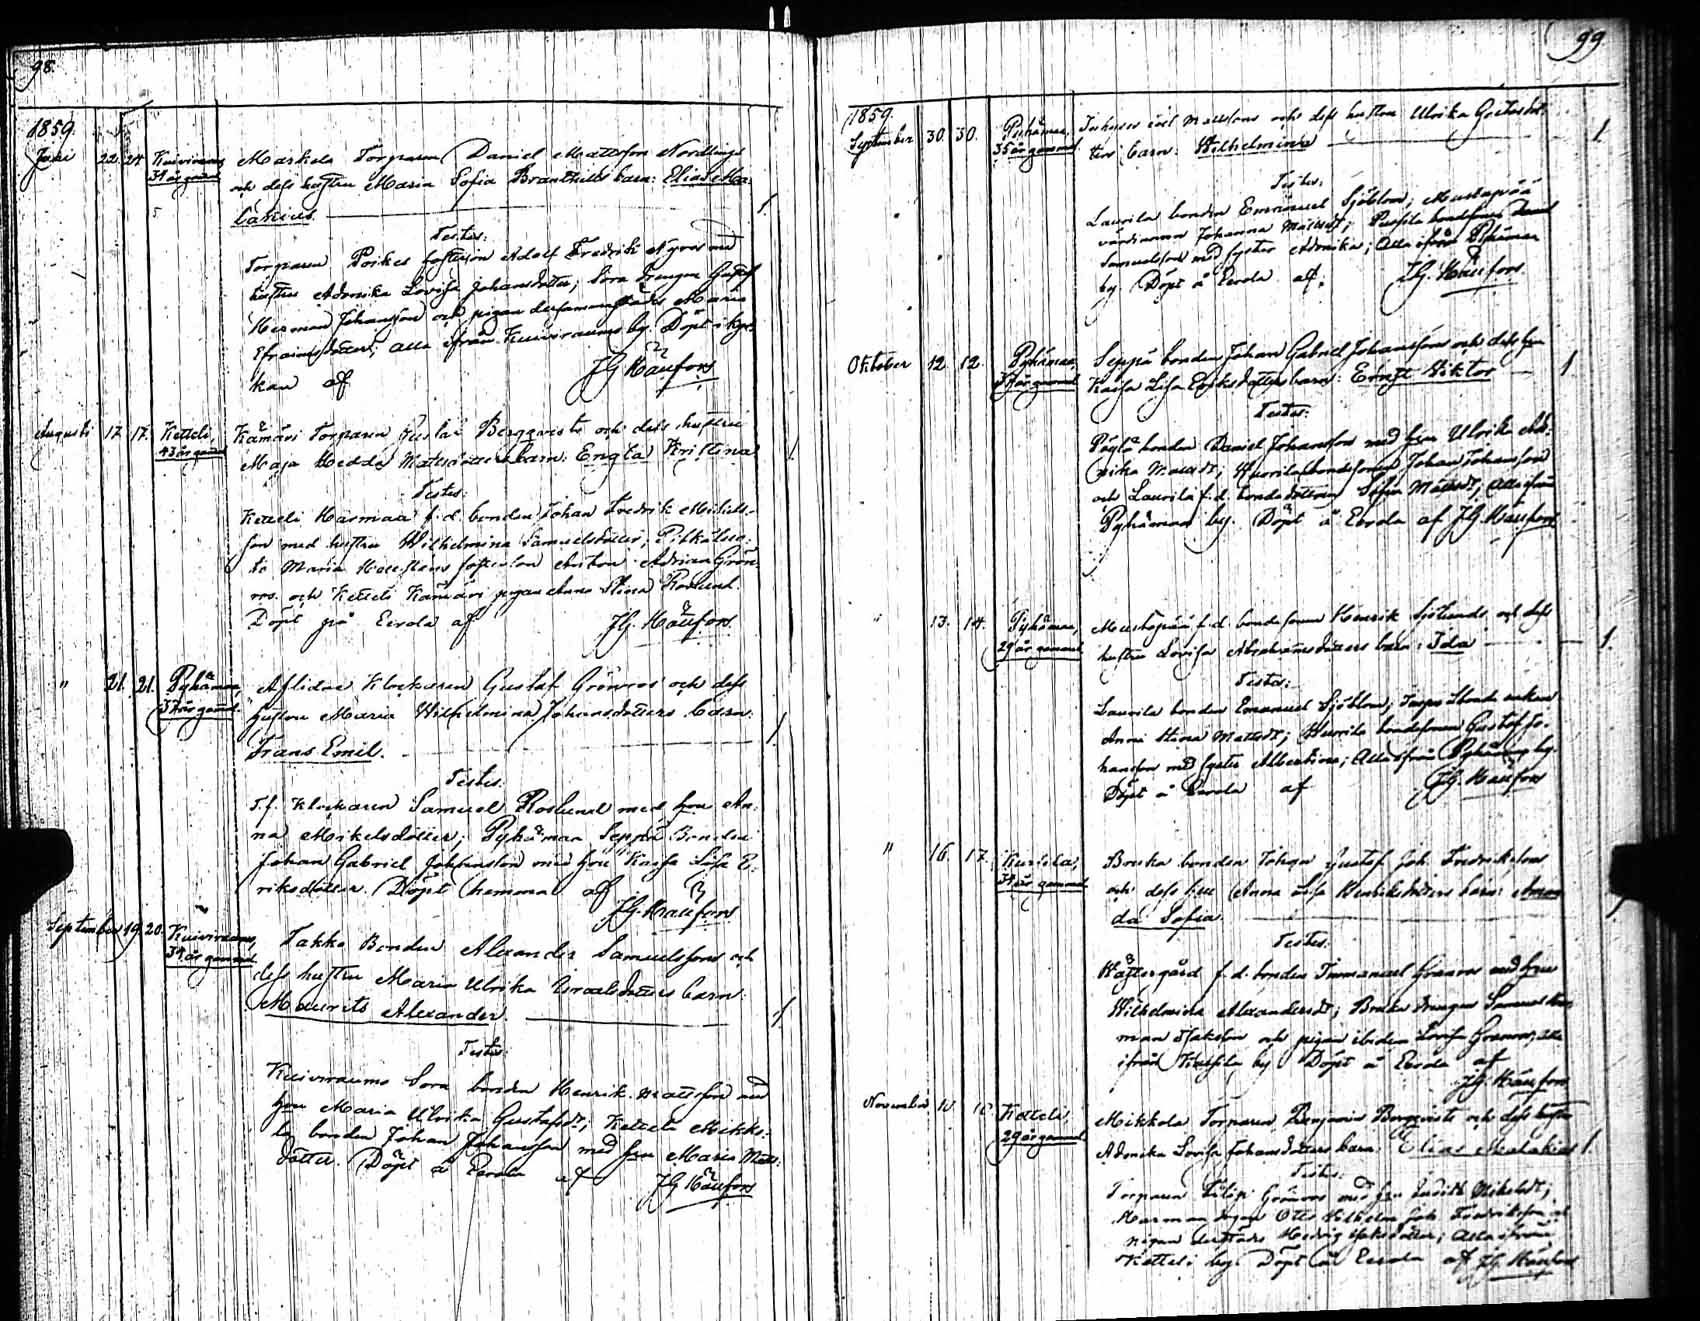 98.
1859
Juni 22. 24. Kuiviraums Markula Torparen Daniel Mattsson Nordlings
31 år gaml och dess hustru Maria Sofia Branthills barn: Elias Ma-
lakias.
Testes:
Torparen Poikes fosterson Adolf Fredrik Nyroos med
hustru Adronika Lovisa Johansdotter; Sora Drengen Gustaf
Herman Johansson och pigan dersammastädes Maria
Efraimsdotter; alla ifrån Kuiviraums by. Döpt i kyr-
kan af JG. Häufors
Augusti 17. 17. Ketteli, Kämäri Torparen Gustaf Bergqvists och dess hustru
43 år gaml Maja Hedda Mattsdotters barn: Engla Kristina
Testes:
Ketteli Harmaa f.d. bonden Johan Fredrik Mikels-
son med hustru Wilhelmina Samuelsdotter;
Maria fosterson Anton Adrian Grön-
roos och Ketteli Kämäri pigan Anna Stina Roslund.
Döpt på Eerola af JG. Häufors
" 21. 21. Pyhämaa, Aflidne Klockaren Gustaf Grönroos och dess
37 år gaml. hustru Maria Wilhelmina Johansdotters barn:
Frans Emil.
Testes:
T.f. Klockaren Samuel Roslund med hru An-
na Mikelsdotter; Pyhämaa Seppä Bonden
Johan Gabriel Johansson med hru Kaisa Lisa E-
riksdotter. Döpt hemma af
JG. Häufors
September 19. 20. Kuiviraums, Jakko Bonden Alexander Samuelssons och
34 år gammal dess hustru Maria Ulrika Israelsdotters barn:
Maurits Alexander.
Testes:
Kuiviraums Sora bonden Henrik Mattsson med
hru Maria Ulrika Gustafsdr; Ketteli Mikko-
la bonden Johan Johansson med hru Maria Matts-
dotter. Döpt å Eerola af JG Häufors
99
1859.
September 30. 30. Pyhämaa, Mattsons och dess hustru Ulrika
35 år gammal ters barn: Wilhelmina 1
Testes:
Laurila bonden Emanuel Sjöblom; Mustapää
värdinnan Johanna Mattsdr; bondesonen
Samuelsson med syster Adronika; Alla ifrån Pyhämaa
by Döpt å Eerola af. JG. Häufors.
Oktober 12. 12. Pyhämaa, Seppä bonden Johan Gabriel Johanssons och dess hru
37 år gammal Kaisa Lisa Eriksdotters barn: Ernst Wiktor 1
Testes:
bonden Daniel Johansson med hru Ulrika Ad-
rika Mattsdr; bondesonen Johan Johansson
och Laurila f.d. bondedottren Sofia Mattsdr; Alla ifrån
Pyhämaa by. Döpt å Eerola af JG. Häufors
" 13. 14. Pyhämaa, Mustapää f.d. bondesonen Henrik Sjölunds och dess
29 år gammal hustru Lovisa Abrahamsdotters barn: Ida 1.
Testes:
Laurila bonden Emanuel Sjöblom; enkan
Anna Stina Mattsdr; bondesonen Gustaf Jo-
hansson med syster Albertina; Alla ifrån Pyhämaa by.
Döpt å Eerola af JG. Häufors
" 16. 17. Kursila, Bruka bonden Johan Gustaf Joh. Fredrikssons
34 år gammal och dess hru Anna Lisa Henriksdotters barn: Aman-
da Sofia. 1
Testes:
Wästergård f.d. bonden Immanuel Granroos med hru
Wilhelmina Alexandersdr; Bruka drengen Samuel Her-
man Isaksson och pigan ibidem Lovisa Granroos; alla
ifrån Kursila by Döpt å Eerola af
JG. Häufors
November 10. 10. Ketteli, Mikkola Torparen Benjamin Bergqvists och dess hustru
29 år gammal Adonika Lovisa Johansdotters barn: Elias Malakias 1.
Testes:
Torparen Filip Grönroos med hru Judith Mikelsdr;
Harmaa drengen Otto Wilhelm Joh. Fredriksson och
pigan derstädes Hedvig Isaksdotter; Alla ifrån
Ketteli by Döpt å Eerola af JG. Häufors